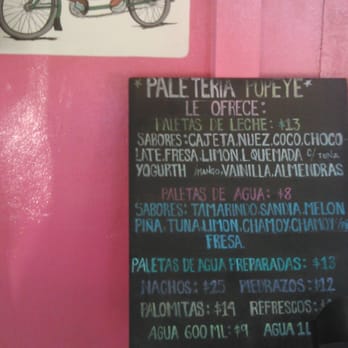 *PALETERIA POPEYE*
LE OFRECE:
PALETAS DE LECHE: $13
SABORES: CAJETA, NUEZ, COCO, CHOCO
LATE, FRESA, LIMON, L.QUEMADA c/ tuna
YOGURTH /mango, VAINILLA, ALMENDRAS
PALETAS DE AGUA: $8
SABORES: TAMARINDO, SANDIA, MELON
PIÑA, TUNA, LIMON, CHAMOY, CHAMOY
FRESA.
PALETAS DE AGUA PREPARADAS: $13
NACHOS: $25 PIEDRAZOS: $12
PALOMITAS: $14 REFRESCOS:
AGUA 600 ML: $9 AGUA 1L